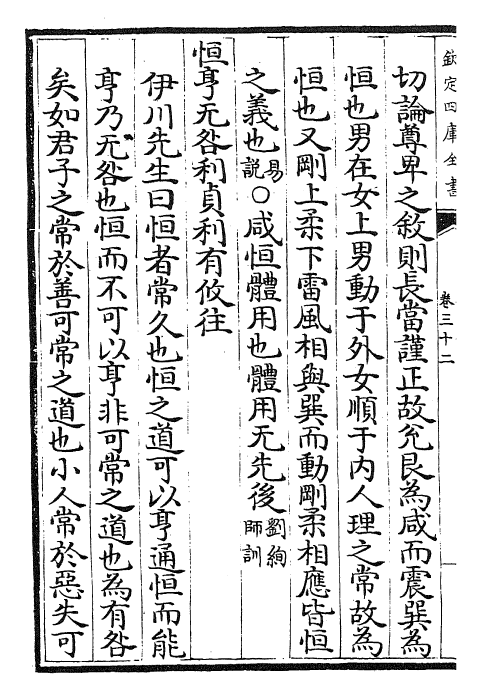 欽定四庫全書
卷三十二
切論尊卑之敘則長當謹正故兊艮為咸而震巽為
恒也男在女上男動于外女順于内人理之常故為
恒也又剛上柔下雷風相與巽而動剛柔相應皆恒
之義也易説○咸恒體用也體用无先後劉絢師訓
恒亨无咎利貞利有攸往
伊川先生曰恒者常久也恒之道可以亨通恒而能
亨乃无咎也恒而不可以亨非可常之道也為有咎
矣如君子之常於善可常之道也小人常於惡失可